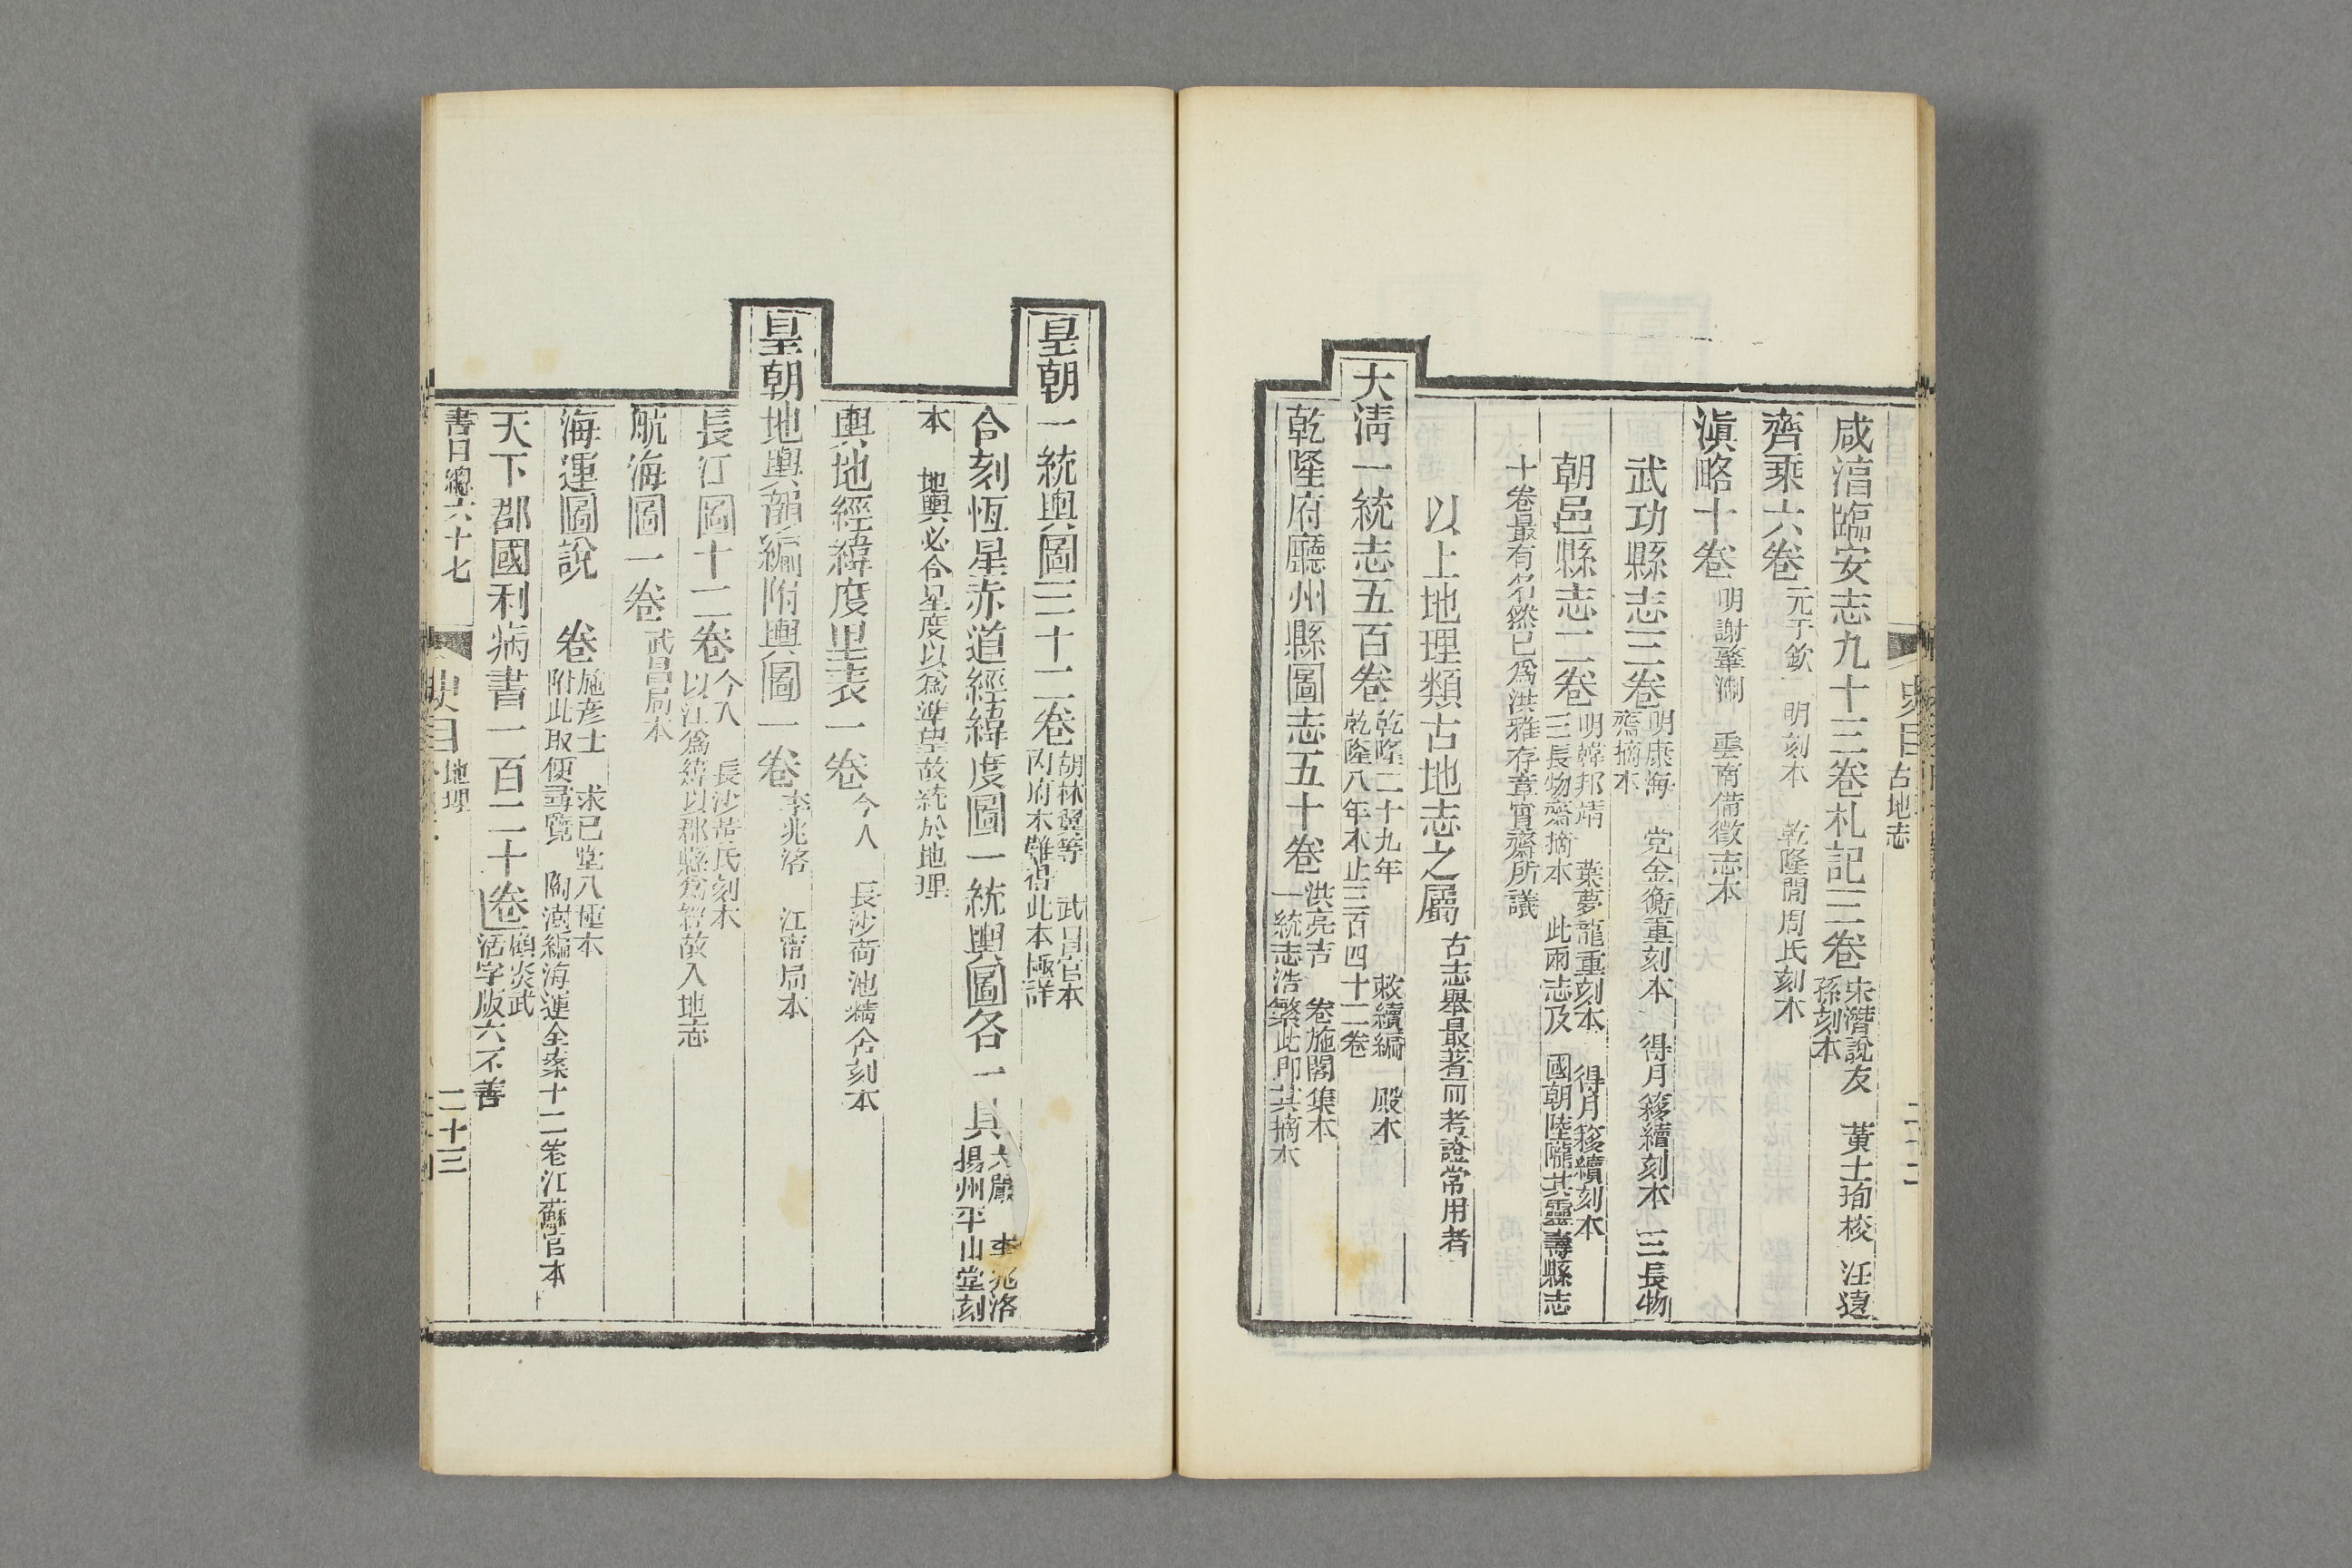 咸淳臨安志九十三卷札記三卷 宋潛說友 黃士珣校 汪遠
孫刻本
齊乘六卷 元于欽 明刻本 乾隆間周氏刻本
滇略十卷 明謝肇淛 雲南備徵志本
武功縣志三卷 明康海 党金衡重刻本 得月簃續刻本 三長物
齋摘本
朝邑縣志二卷 明韓邦靖 葉夢龍重刻本 得月簃續刻本
三長物齋摘本 此兩志及 國朝陸隴其靈壽縣志
十卷最有名然已爲洪雅存章實齋所議
以上地理類古地志之屬 古志舉最著而考證常用者
大淸一統志五百卷 乾隆二十九年 敕續編 殿本
乾隆八年本止三百四十二卷
乾隆府廳州縣圖志五十卷 洪亮吉 卷施閣集本
一統志浩繁此卽其摘本
史目 古地志
皇朝一統輿圖三十二卷 胡林翼等 武昌官本
內府本難得此本極詳
合刻恆星赤道經緯度圖一統輿圖各一具 六嚴 李兆洛
揚州平山堂刻
本 地輿必合星度以爲準望故統於地理
輿地經緯度里表一卷 今人 長沙荷池精舍刻本
皇朝地輿韻編附輿圖一卷 李兆洛 江甯局本
長江圖十二卷 今人 長沙黃氏刻本
以江爲經以郡縣爲緯故入地志
航海圖一卷 武昌局本
海運圖說 卷 施彦士 求己堂八種本
附此取便尋覽 陶澍編海運全案十二卷江蘇官本
天下郡國利病書一百二十卷 顧炎武
活字版亦不善
書目總六十七 史目 地理 二十三